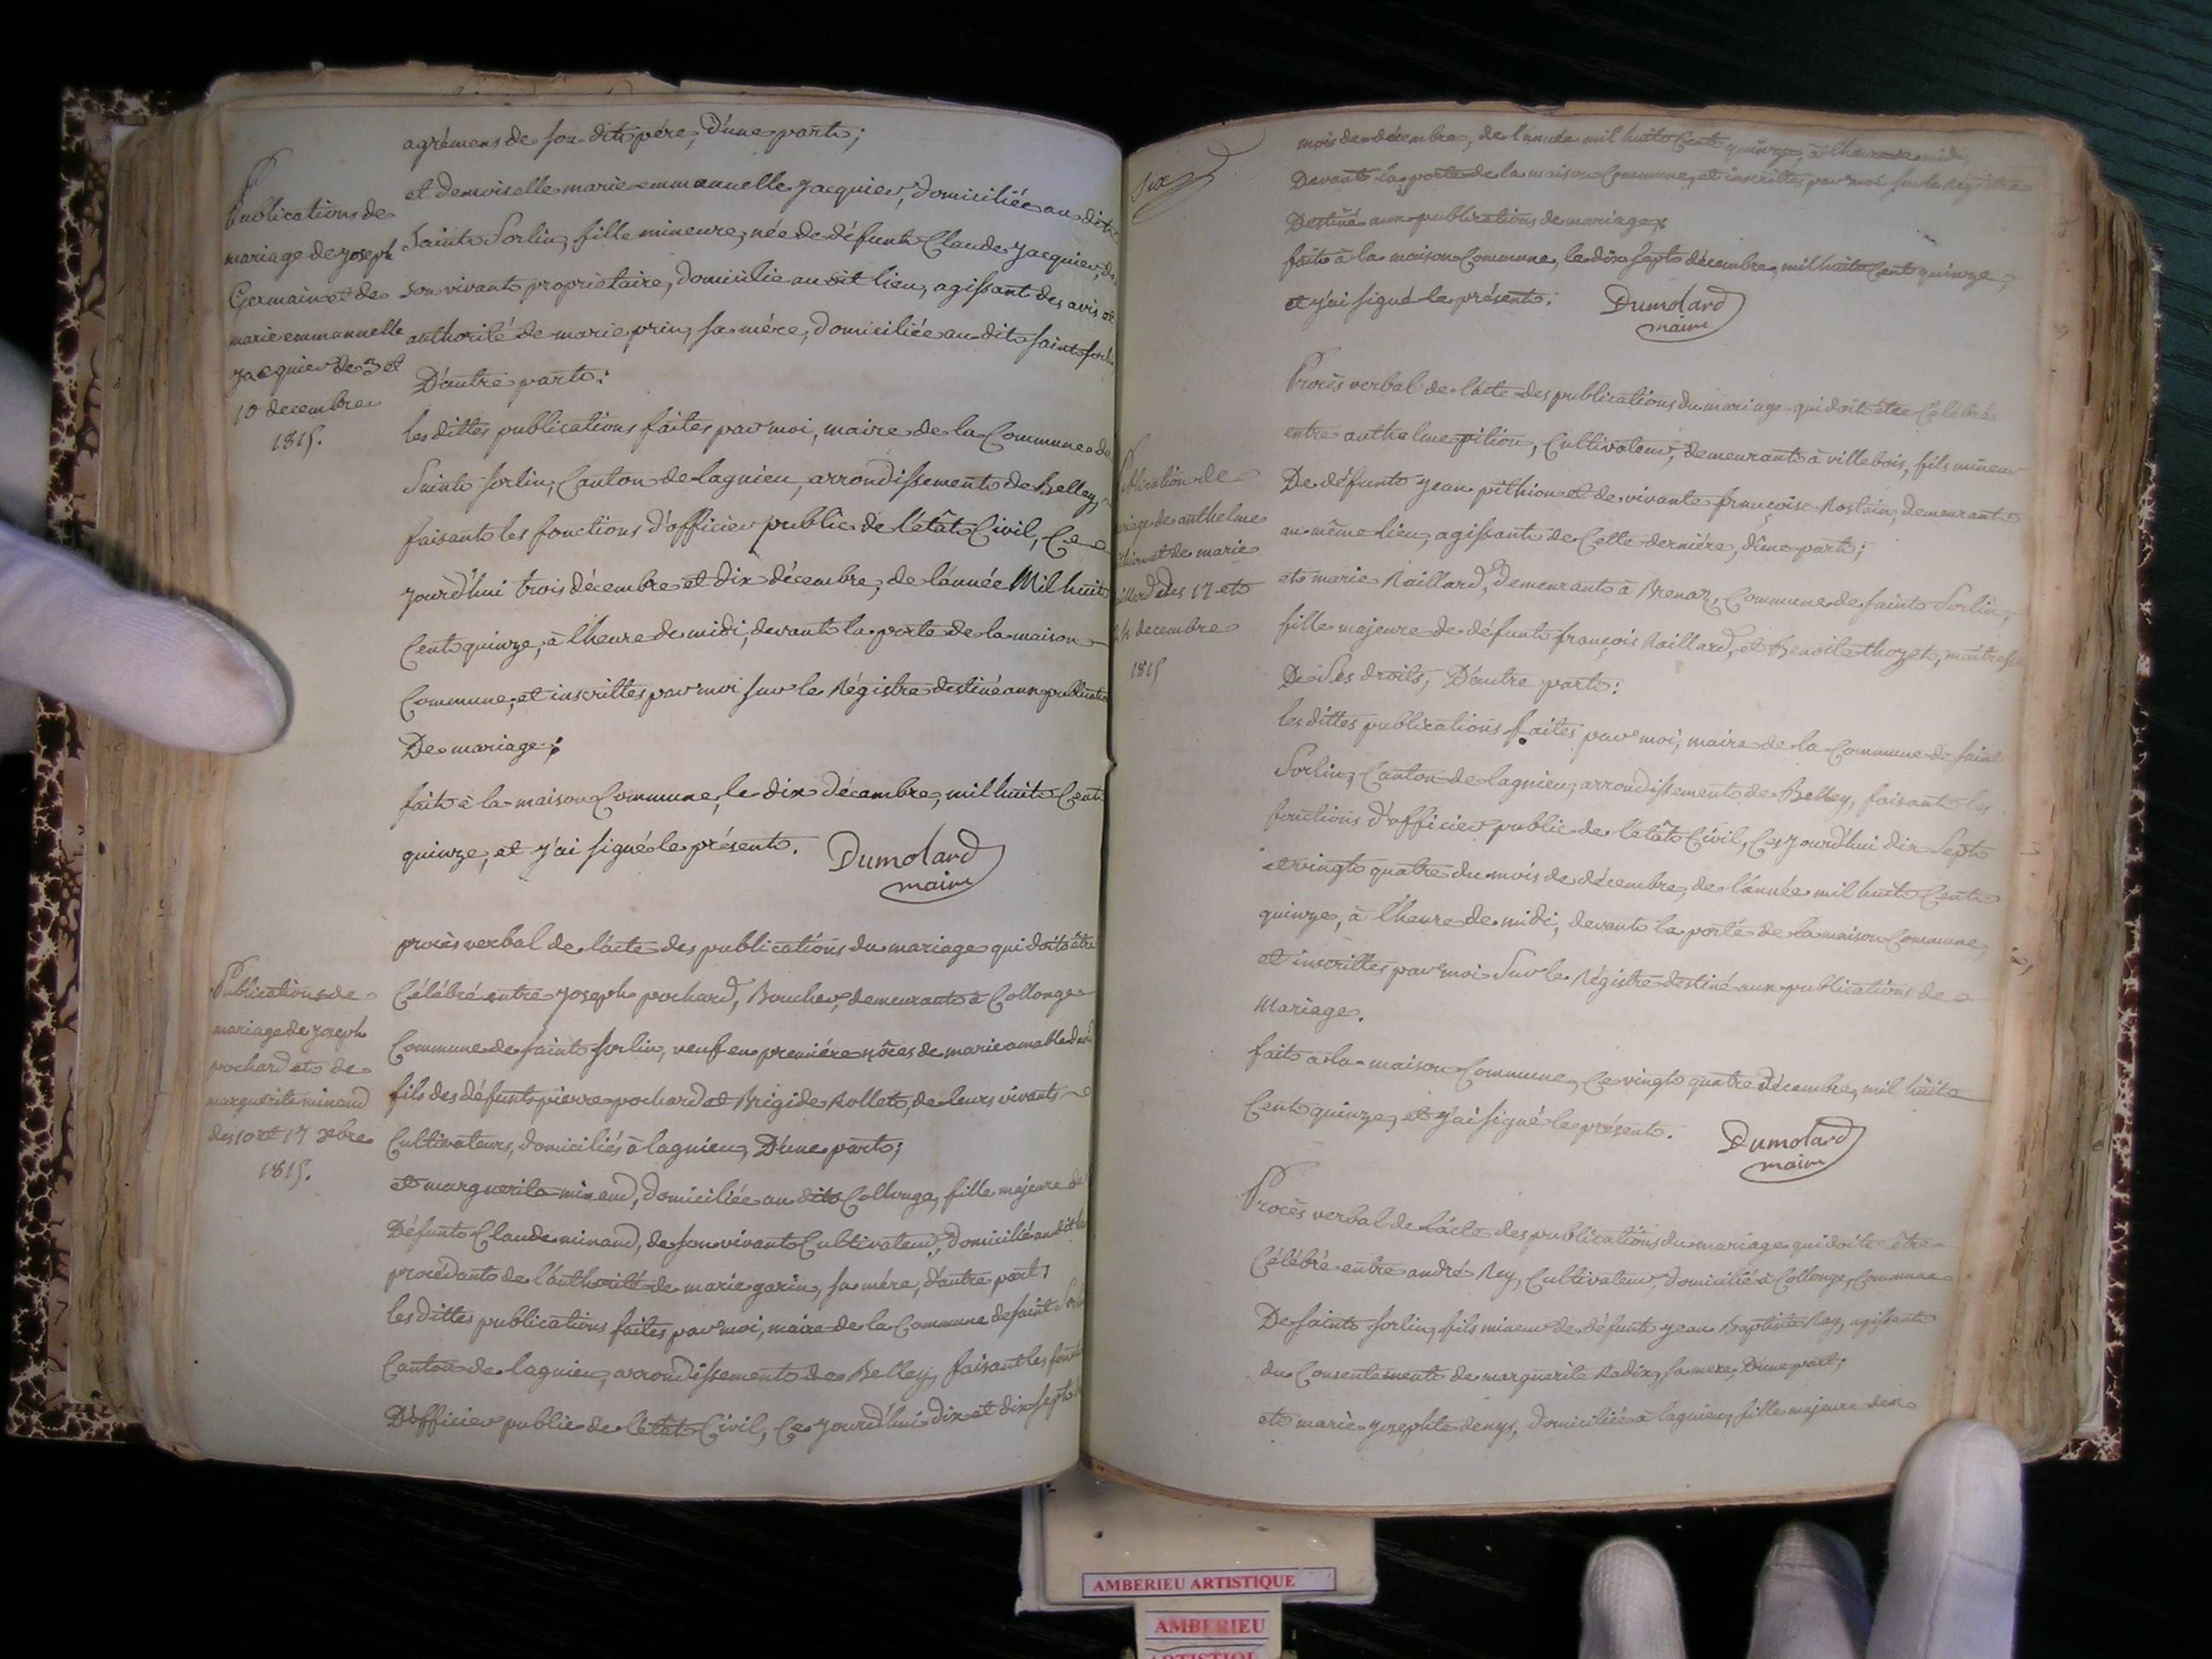 agrémens de son dit père, D'une part;
et demoiselle marie emmanuelle jacquier, domiciliée au dit
Saint Sorlin, fille mineure, née de défunt Claude jacquier, de
son vivant propriétaire, domicilie au dit lieu, agissant des avis et
authorité de marie prin, sa mére, domiciliée au dit saint sorlin
D'autre part:
les dittes publications faites par moi, maire de la Commune de
Saint Sorlin, Canton de lagnieu, arrondissement de Belley,
faisant les fonctions d'officier public de l'êtât Civil, Ce
jourd'hui trois décembre et dix décembre, de l'année Mil huit
Cent quinze, à l'heure de midi, devant la porte de la maison
Commune, et inscrittes par moi sur le Régistre destiné aux publications
De mariage;
fait à la maison Commune, le dix décembre, mil huit Cent
quinze, et j'ai signé le présent. Dumolard
maire
Publications de
mariage de joseph
Germain et de
marie emmanuelle
jacquier de 3 et
10 decembre
1815.
procès verbal de l'acte des publications du mariage qui doit être
Célébré entre joseph pochard, Boucher, demeurant à Collonge
Commune de saint sorlin, veuf en première nôces de marie amable
fils des défunts pierre pochard et Brigide Rollet, de leurs vivants
Cultivateurs, domiciliés à lagnieu, D'une part;
et marguerite minand, domiciliée au dit Collonge, fille majeure de
Défunt Claude minand, de son vivant Cultivateur, Domicilié au dit lieu
procédant de l'authorité de marie garin, sa mére, d'autre part;
les dittes publications faites par moi, maire de la Commune de saint Sorlin
Canton de lagnieu, arrondissement de Belley, faisant les fonctions
D'officier public de l'êtât Civil, Ce jourd'hui dix et dix sept
Publications de
mariage de joseph
pochard et de
marguerite minand
des 10 et 17 xbre
1815.
mois de décembre, de l'année mil huit Cent quinze, à l'heure de midi,
Devant la porte de la maison Commune, et inscrittes par moi sur le Régistre
Destiné aux publications de mariage;
fait à la maison Commune, le dix sept décembre, mil huit Cent quinze,
et j'ai signé le présent. Dumolard
maire
Procès verbal de l'acte des publications du mariage qui doit être Célébré
entre anthelme pition, Cultivateur, demeurant à villebois, fils mineur
De défunt jean pithion et de vivante françoise Roslain, demeurant
au même lieu, agissant de Cette derniére, d'une part;
et marie Raillard, demeurant à Brenaz, Commune de saint Sorlin,
fille majeure de défunt françois Raillard, et Benoite thozet, maitresse
De Ses droits, D'autre part:
les dittes publications faites par moi, maire de la Commune de saint
Sorlin, Canton de lagnieu, arrondissement de Belley, faisant les
fonctions d'officier public de l'êtât Civil, Ce jourd'hui dix Sept
et vingt quatre du mois de décembre, de l'année mil huit Cent
quinze, à l'heure de midi, devant la porte de la maison Commune,
et inscrittes par moi Sur le Régistre destiné aux publications de
Mariage.
fait à la maison Commune, Ce vingt quatre Décembre, mil huit
Cent quinze, et j'ai signé le présent. Dumolard
maire
Publication de
mariage de anthelme
pithion et de marie
Raillard des 17 et
24 decembre
1815
Procès verbal de l'acte des publications du mariage qui doit être
Célébré entre andré Rey, Cultivateur, Domicilié à Collonge, Commune
De saint sorlin, fils mineur de défunt jean Baptiste Rey, agissant
du Consentement de marguerite Radix, sa mere, D'une part;
et marie josephte denys, Domiciliée à lagnieu, fille majeure de
AMBERIEU ARTISTIQUE
AMBERIEU
ARTISTIQUE